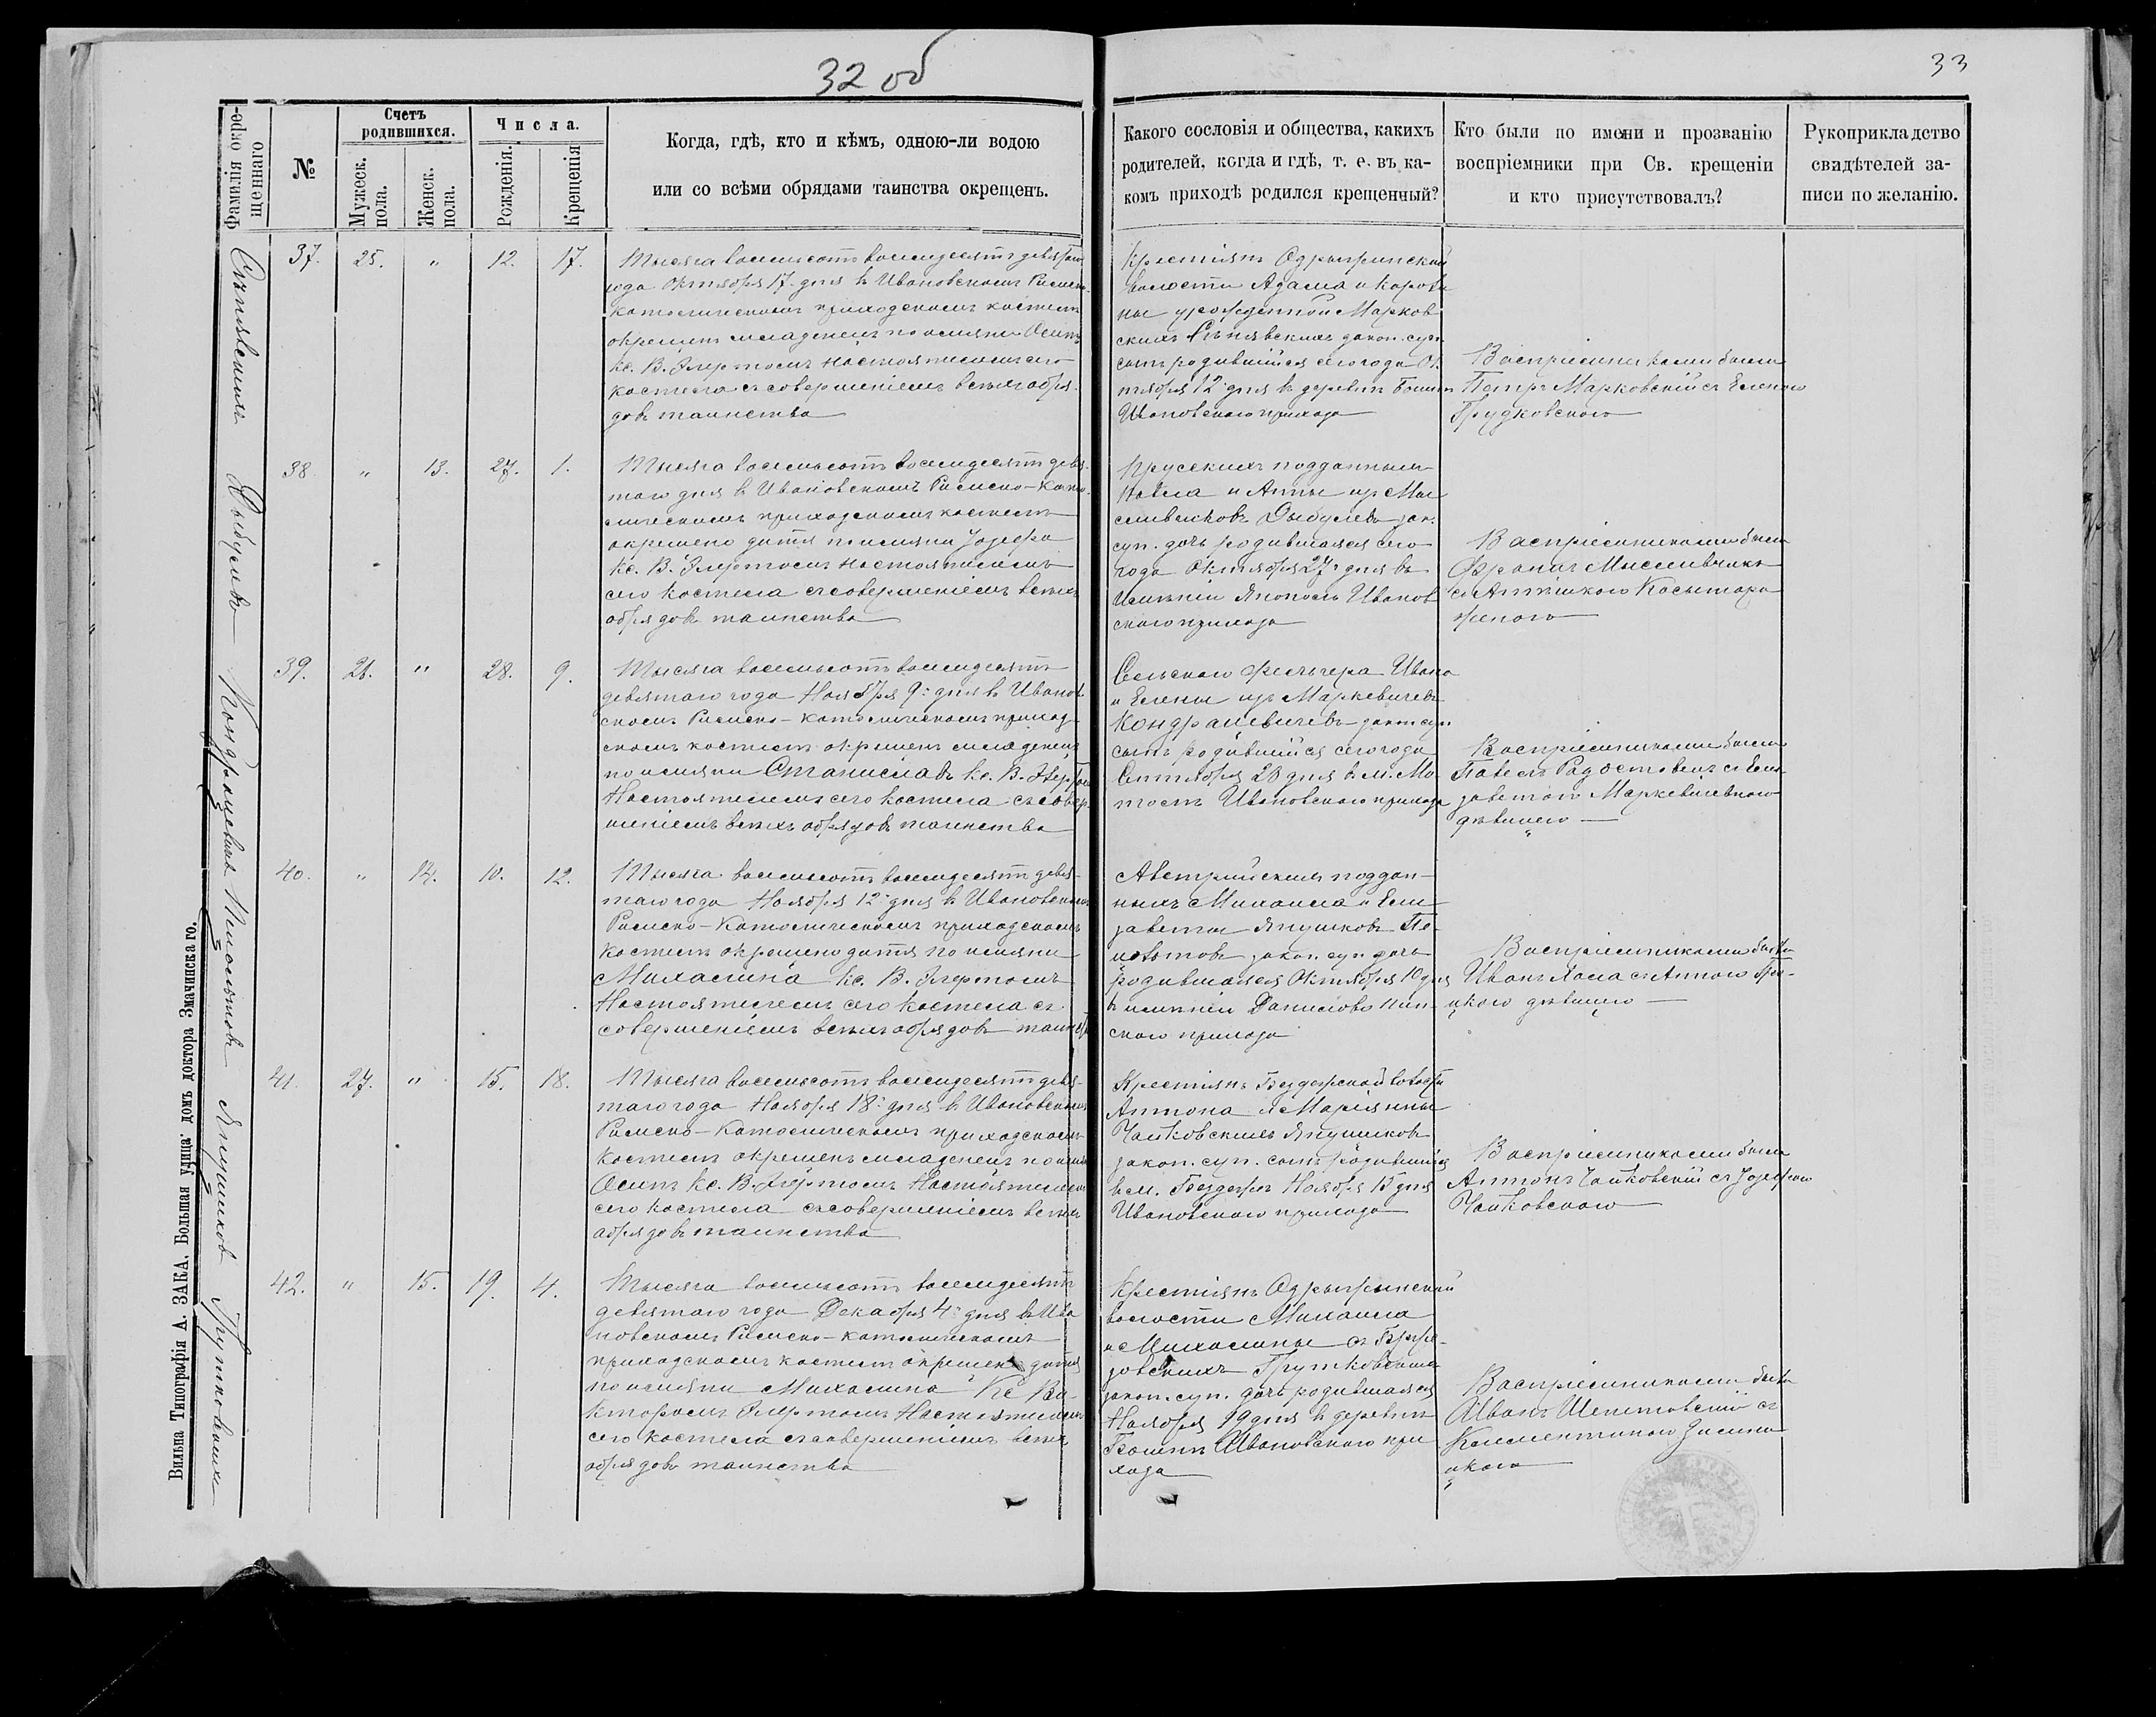 32 об
33
Фамилія окре-
щеннаго
№
Счетъ
родившихся.
Мужеск.
пола.
Женск.
пола.
Числа.
Рожденія.
Крещенія
Когда, гдѣ, кто и кѣмъ, одною-ли водою
или со всѣми обрядами таинства окрещенъ.
Какого сословія и общества, какихъ
родителей, когда и гдѣ, т. е. въ ка-
комъ приходѣ родился крещенный?
Кто были по имени и прозванію
воспріемники при Св. крещеніи
и кто присутствовалъ?
Рукоприкладство
свидѣтелей за-
писи по желанію.
37. 25. " 12. 17.
Тысяча восемьсотъ восемдесятъ девятаго
года Октября 17. дня въ Ивановскомъ Римско-
католическомъ приходскомъ костелѣ
окрещенъ младенецъ по имяни Осипъ
кс. В. Элертомъ настоятелемъ сего
костела съ совершеніемъ всѣхъ обря-
довъ таинства
Крестьянъ
волости Адама и Кароли
ны урожденной Марков
скихъ закон. суп.
сынъ родившійся сего года Ок
тября 12 дня въ деревнѣ
Ивановскаго прихода
Воспріемниками были
Петръ Марковскій съ Еленою
Грудковскою
38 " 13. 27. 1.
Тысяча восемьсотъ восемдесятъ девя-
таго дня въ Ивановскомъ Римско-като-
лическомъ приходскомъ костелѣ
окрещено дитя по имяни Іозефа
кс. В. Элертомъ настоятелемъ
сего костела съ совершеніемъ всѣхъ
обрядовъ таинства
Прусскихъ подданныхъ
Павла и Анны изъ Мы
сливчиковъ зак.
суп. дочь родившаяся сего
года Октября 27 дня въ
имѣніи Янополь Иванов
скаго прихода
Воспріемниками были
Францъ Мысливчикъ
39. 26. " 28. 9.
Тысяча восемьсотъ восемдесятъ
девятаго года Ноября 9. дня въ Иванов
скомъ Римско-католическомъ приход-
скомъ костелѣ окрещенъ младенецъ
по имяни Станиславъ кс. В. Элертомъ
Настоятелемъ сего костела съ совер
шеніемъ всѣхъ обрядовъ таинства
Сельскаго фельчера Ивана
и Елены изъ Маркевичевъ
Кондрацевичевъ закон суп
сынъ родившійся сего года
Сентября 28 дня въ м. Мо
толѣ Ивановскаго прихода
Воспріемниками были
Павелъ съ Ели-
заветою Маркевичевною
дѣвицею
40. " 14. 10. 12.
Тысяча восемьсотъ восемдесятъ девя-
таго года Ноября 12 дня въ Ивановскомъ
Римско-Католическомъ приходскомъ
костелѣ окрещено дитя по имяни
Михалина кс. В. Элертомъ
Настоятелемъ сего костела съ
совершеніемъ всѣхъ обрядовъ таинст
Австрійскихъ поддан-
ныхъ Михаила и Ели
заветы Янушковъ
закон. суп дочь
родившаяся Октября 10 дня
въ имѣніи Данилово Пин-
скаго прихода
Воспріемниками были
Иванъ съ Анною
дѣвицею
41. 27. " 15. 18.
Тысяча восемьсотъ восемдесятъ девя-
таго года Ноября 18 дня въ Ивановскомъ
Римско-Католическомъ приходскомъ
Костелѣ окрещенъ младенецъ по имяни
Осипъ кс. В. Элертомъ Настоятелемъ
сего костела съ совершеніемъ всѣхъ
обрядовъ таинства
Крестьянъ Бездежской волости
Антона и Маріянны
Чайковскихъ Янушковъ
закон. суп. сынъ родившійся
въ м. Бездежѣ Ноября 15 дня
Ивановскаго прихода
Воспріемниками были
Антонъ Чайковскій съ Іозефою
Чайковскою
42. " 15. 19. 4.
Тысяча восемьсотъ восемдесятъ
девятаго года Декабря 4 дня въ Ива
новскомъ Римско-католическомъ
приходскомъ костелѣ окрещено дитя
по имяни Михалина Кс Ви-
кторомъ Элертомъ Настоятелемъ
сего костела съ совершеніемъ всѣхъ
обрядовъ таинства
Крестьянъ
волости Михаила
и Михалины съ Бржо-
зовскихъ Грутковскихъ
закон. суп. дочь родившаяся
Ноября 19 дня въ деревнѣ
Ивановскаго при
хода
Воспріемниками были
Иванъ Шепетовскій съ
Клементиною
Кондрацевичъ
Янушковъ
Грутковскихъ
Вильна Типографія А. ЗАКА, Большая улица домъ доктора Змачинскаго.